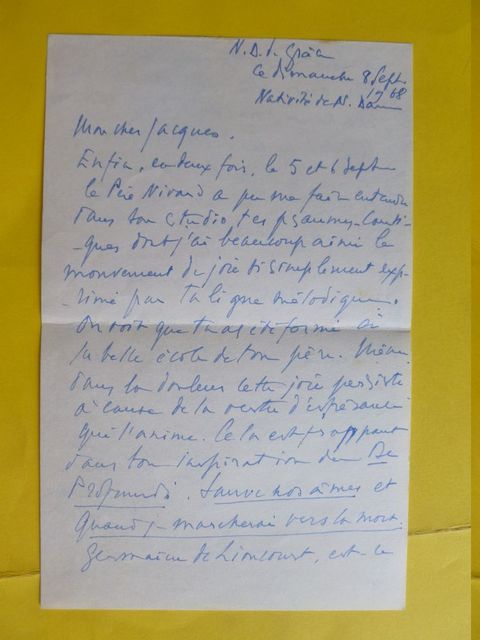 N.D. de Grâce
ce dimanche 8 Sept
1968
Nativité de N. Dame
Mon cher Jacques.
Enfin, en deux fois, le 5 et 6 Septe
le Père Nivard a pu me faire entendre
dans son studio, tes psaumes-Canti-
-ques dont j'ai beaucoup aimé le
mouvement de joie si simplement exp-
-rimé par ta ligne mélodique.
On voit que tu as été formé à
la belle école de ton père. Même
dans la douleur cette joie persiste
à cause de la vertu d'espérance
qui l'anime. Cela est frappant
dans ton inspiration du De
Profundis. Sauve nos âmes et
Quand je marcherai vers la mort.
Germaine de Lioncourt, est-ce